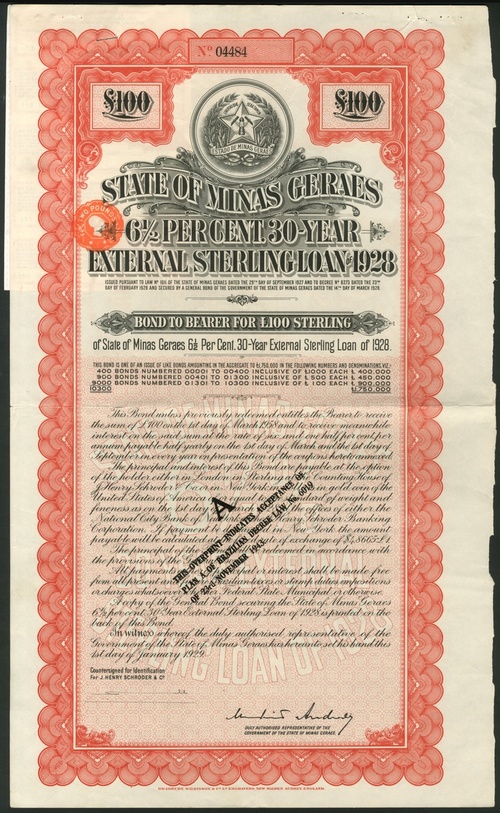 No 04484
£100 £100
ESTADO DE MINAS GERAES
STATE OF MINAS GERAES
TWO POUNDS
6½ PER CENT. 30-YEAR
EXTERNAL STERLING LOAN OF 1928
ISSUED PURSUANT TO LAW Nº 1011 OF THE STATE OF MINAS GERAES DATED THE 29TH DAY OF SEPTEMBER 1927 AND TO DECREE Nº 8273 DATED THE 23RD
DAY OF FEBRUARY 1928 AND SECURED BY A GENERAL BOND OF THE GOVERNMENT OF THE STATE OF MINAS GERAES DATED THE 14TH DAY OF MARCH 1928.
BOND TO BEARER FOR £100 STERLING
of State of Minas Geraes 6½ Per Cent. 30-Year External Sterling Loan of 1928.
THIS BOND IS ONE OF AN ISSUE OF LIKE BONDS AMOUNTING IN THE AGGREGATE TO £1,750,000 IN THE FOLLOWING NUMBERS AND DENOMINATIONS, VIZ:
400 BONDS NUMBERED 00001 TO 00400 INCLUSIVE OF £1000 EACH £ 400,000
900 BONDS NUMBERED 00401 TO 01300 INCLUSIVE OF £ 500 EACH £ 450,000
9000 BONDS NUMBERED 01301 TO 10300 INCLUSIVE OF £ 100 EACH £ 900,000
£1,750,000
This Bond unless previously redeemed entitles the Bearer to receive
the sum of £100 on the 1st day of March 1958 and to receive meanwhile
interest on the said sum at the rate of six and one half per cent per
annum payable half yearly on the 1st day of March and the 1st day of
September in every year on presentation of the coupons hereto annexed.
The principal and interest of this Bond are payable at the option
of the holder either in London in Sterling at the Counting House of
J. Henry Schroder & Co or in New York in gold coin of the
United States of America equal to the standard of weight and
fineness as on the 1st day of March at the offices of either the
National City Bank of New York or J. Henry Schroder Banking
Corporation. If payment New York the amount
payable will be calculated at the rate of exchange of $4.8665=£1
The principal of the redeemed in accordance with
the provisions of the
All payments principal or interest shall be made free
from all present and Brazilian taxes or stamp duties impositions
or charges whatsoever whether Federal State Municipal or otherwise.
A copy of the General Bond securing the State of Minas Geraes
6½ per cent. 30 Year External Sterling Loan of 1928 is printed on the
back of this Bond.
In witness whereof the duly authorised representative of the
Government of the State of Minas Geraes has hereunto set his hand this
1st day of January 1929.
A
THIS OVERPRINT INDICATES ACCEPTANCE OF
PLAN A OF BRAZILIAN DECREE LAW No. 6019
OF 23rd NOVEMBER 1943.
Countersigned for Identification
For J. HENRY SCHRODER & Co
DULY AUTHORISED REPRESENTATIVE OF THE
GOVERNMENT OF THE STATE OF MINAS GERAES.